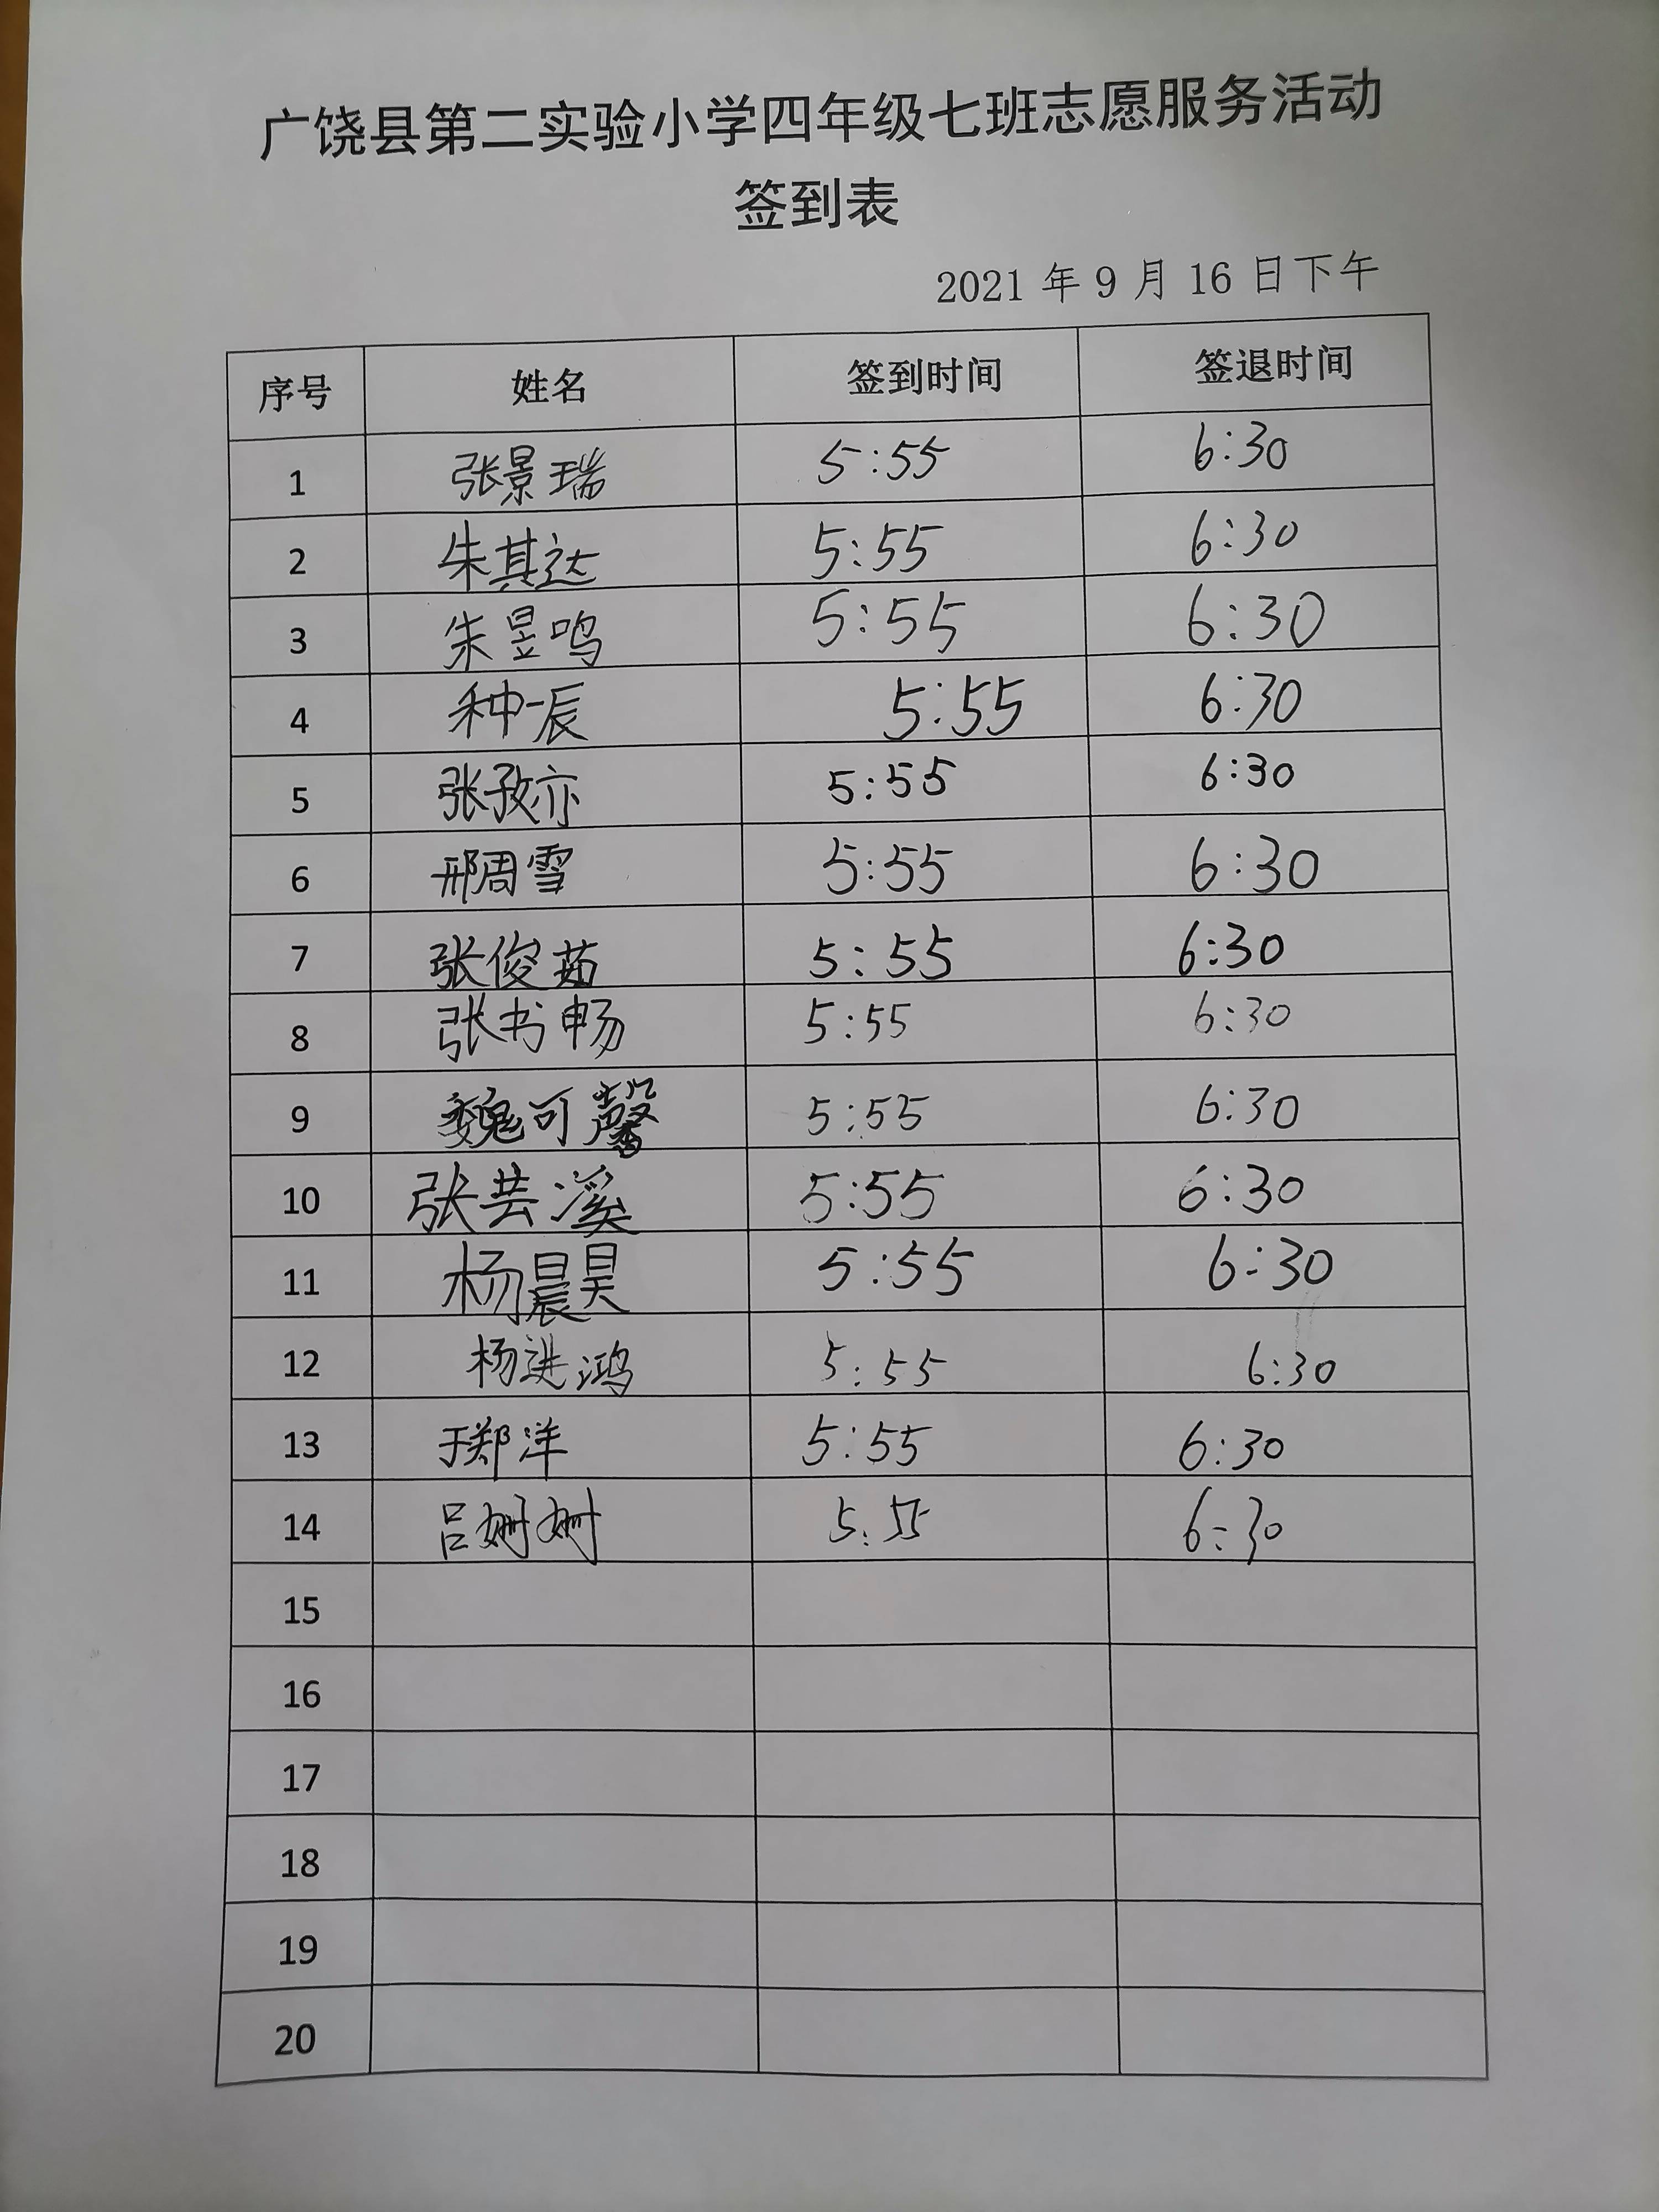 广饶县第二实验小学四年级七班志愿服务活动
签到表
2021 年 9 月 16 日下午
序号 姓名 签到时间 签退时间
1 张景瑞 5:55 6:30
2 朱其达 5:55 6:30
3 朱昱鸣 5:55 6:30
4 种一辰 5:55 6:30
5 张孜亦 5:55 6:30
6 邢周雪 5:55 6:30
7 张俊茹 5:55 6:30
8 张书畅 5:55 6:30
9 魏可馨 5:55 6:30
10 张芸溪 5:55 6:30
11 杨晨昊 5:55 6:30
12 杨进鸿 5:55 6:30
13 于郑洋 5:55 6:30
14 吕姗姗 5:55 6:30
15
16
17
18
19
20